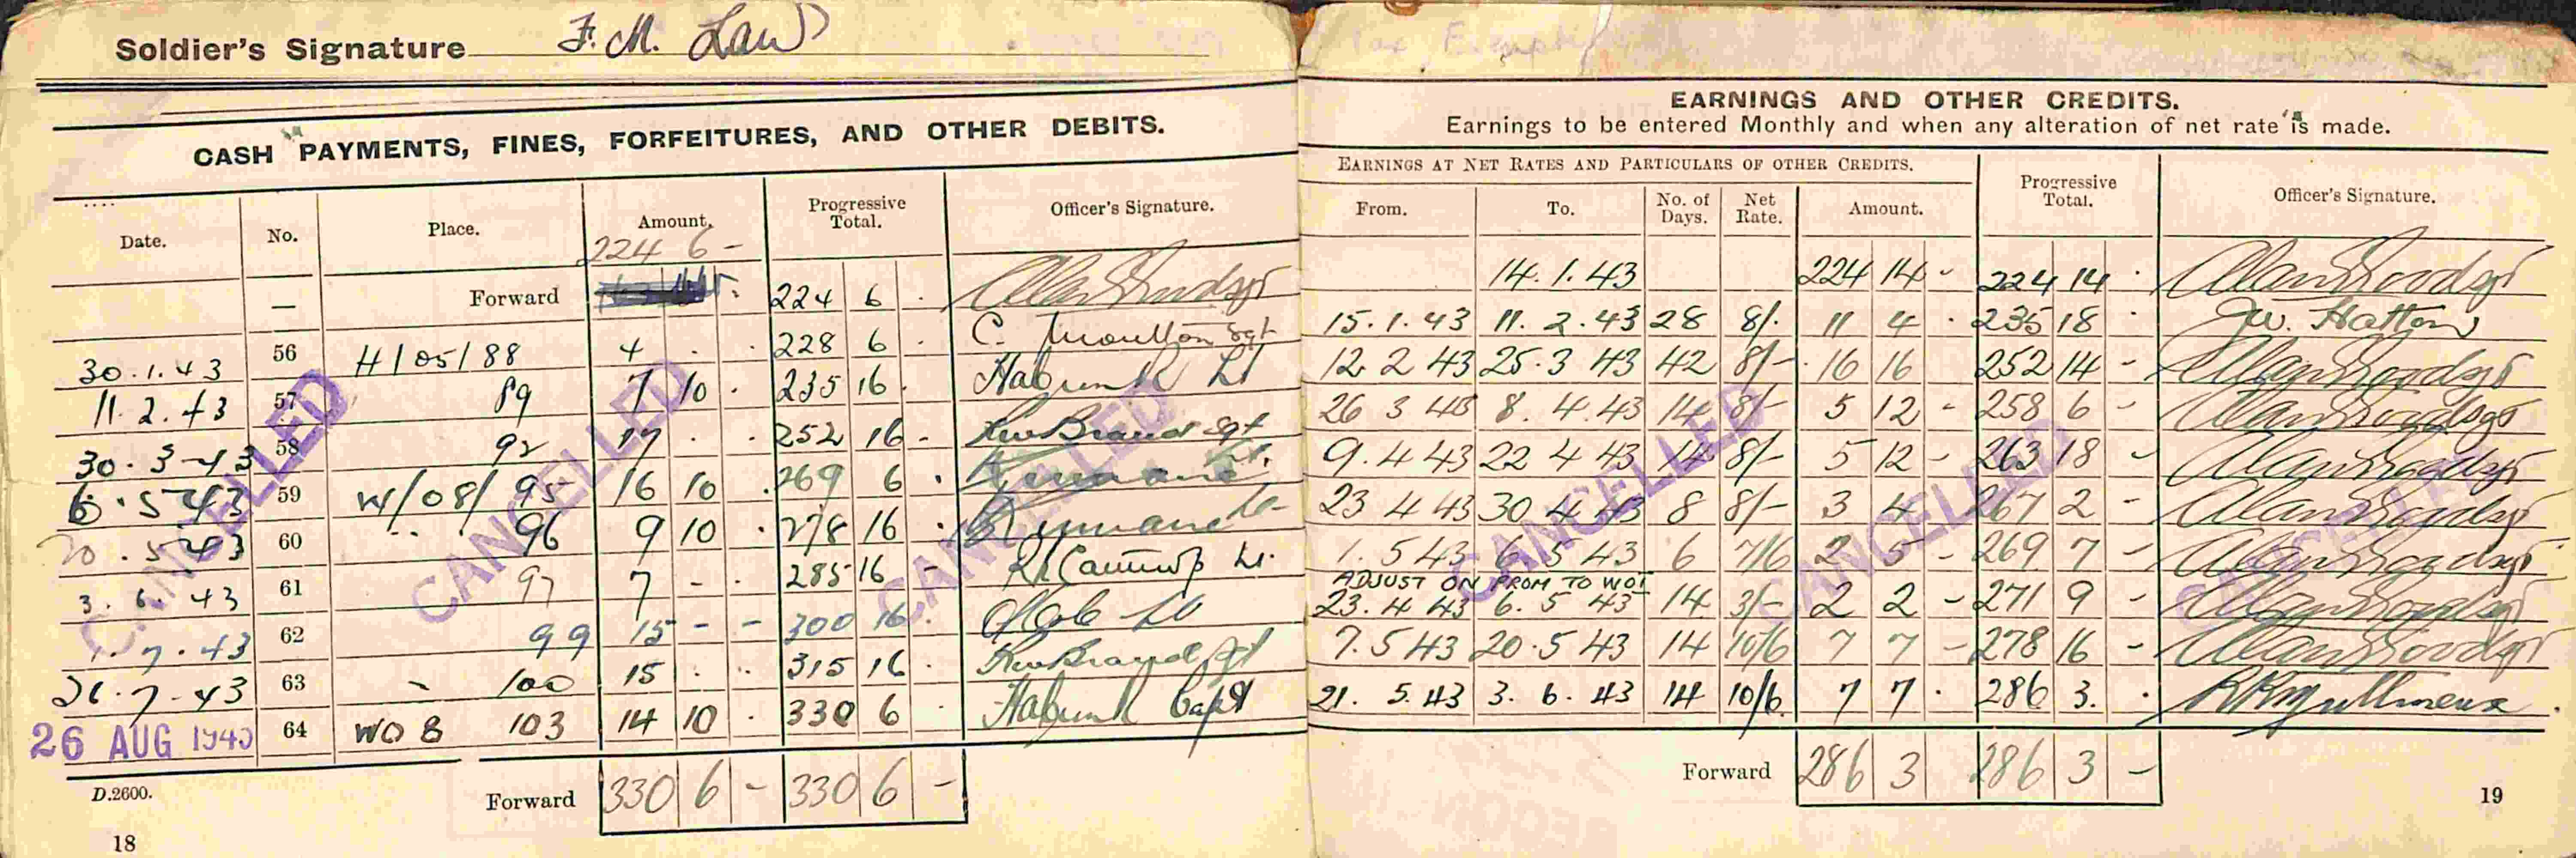 Soldier's Signature F. M. Law
CASH PAYMENTS, FINES, FORFEITURES, AND OTHER DEBITS.
Date. No. Place. Amount. Progressive Total. Officer's Signature.
224 6 -
— Forward 224 6 .
30.1.43 56 H/05/88 4 . . 228 6 . C. Moulton Sgt
11.2.43 57 89 7 10 . 235 16 . Lt
30.3-43 58 92 17 . . 252 16 - Brand Sgt
6.5.43 59 W/08/ 95 16 10 . 269 6 . Lt.
20.5.43 60 " " 96 9 10 . 278 16 .
3.6.43 61 97 7 - . 285 16 - Lt.
1.7.43 62 99 15 - - 300 16 .
21.7-43 63 100 15 . . 315 16 . Brand Sgt
26 AUG 1943 64 WO 8 103 14 10 . 330 6 . Capt
Forward 330 6 - 330 6 -
D.2600.
18
CANCELLED
CANCELLED
CANCELLED
Tax Exempt
EARNINGS AND OTHER CREDITS.
Earnings to be entered Monthly and when any alteration of net rate is made.
EARNINGS AT NET RATES AND PARTICULARS OF OTHER CREDITS.
From. To. No. of Days. Net Rate. Amount. Progressive Total. Officer's Signature.
14.1.43 224 14 - 224 14 .
15.1.43 11.2.43 28 8/. 11 4 . 235 18 . J.W. Hatton
12.2 43 25.3 43 42 8/- 16 16 252 14 -
26 3 43 8.4.43 14 8/- 5 12 - 258 6 -
9.4 43 22 4 43 14 8/- 5 12 - 263 18 -
23 4 43 30 4 43 8 8/- 3 4 - 267 2 -
1.5 43 6 5 43 6 7/6 2 5 - 269 7 -
ADJUST ON PROM TO WOI
23.4 43 6.5 43 14 3/- 2 2 - 271 9 -
7.5 43 20.5 43 14 10/6 7 7 - 278 16 -
21. 5.43 3. 6. 43 14 10/6 7 7 . 286 3 .
Forward 286 3 286 3 -
19
CANCELLED
CANCELLED
CANCELLED